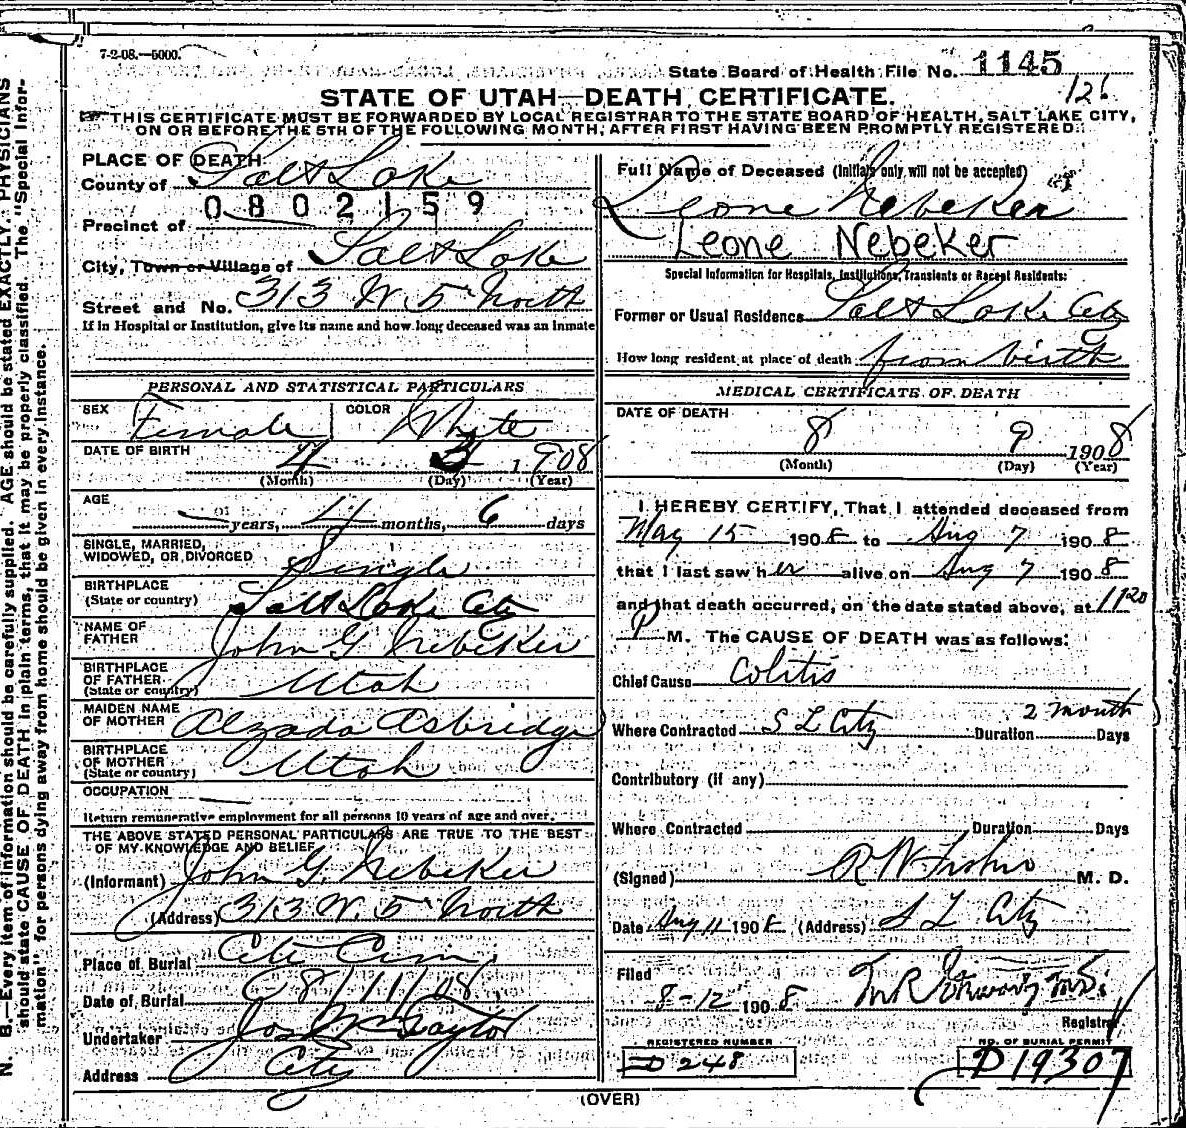 7-2-08.—5000.
State Board of Health File No. 1145
126
STATE OF UTAH—DEATH CERTIFICATE.
THIS CERTIFICATE MUST BE FORWARDED BY LOCAL REGISTRAR TO THE STATE BOARD OF HEALTH, SALT LAKE CITY,
ON OR BEFORE THE 5TH OF THE FOLLOWING MONTH, AFTER FIRST HAVING BEEN PROMPTLY REGISTERED.
PLACE OF DEATH
County of Salt Lake
0802159
Precinct of
City, Town or Village of Salt Lake
Street and No. 313 W. 5" North
If in Hospital or Institution, give its name and how long deceased was an inmate
PERSONAL AND STATISTICAL PARTICULARS
SEX Female COLOR White
DATE OF BIRTH 4 3 1908
(Month) (Day) (Year)
AGE
— years, 4 months, 6 days
SINGLE, MARRIED,
WIDOWED, OR DIVORCED Single
BIRTHPLACE
(State or country) Salt Lake City
NAME OF
FATHER John G. Nebeker
BIRTHPLACE
OF FATHER
(State or country) Utah
MAIDEN NAME
OF MOTHER Alzada Asbridge
BIRTHPLACE
OF MOTHER
(State or country) Utah
OCCUPATION —
Return remunerative employment for all persons 10 years of age and over.
THE ABOVE STATED PERSONAL PARTICULARS ARE TRUE TO THE BEST
OF MY KNOWLEDGE AND BELIEF
(Informant) John G. Nebeker
(Address) 313 W. 5" North
Place of Burial City Cem.
Date of Burial 8/11/08.
Undertaker Jos Wm Taylor
Address City
Full Name of Deceased (Initials only will not be accepted)
Leone Nebeker
Leone Nebeker
Special Information for Hospitals, Institutions, Transients or Recent Residents:
Former or Usual Residence Salt Lake City
How long resident at place of death from birth
MEDICAL CERTIFICATE OF DEATH
DATE OF DEATH
8 9 1908
(Month) (Day) (Year)
I HEREBY CERTIFY, That I attended deceased from
May 15 1908 to Aug 7 1908
that I last saw her alive on Aug 7 1908
and that death occurred, on the date stated above, at 1120
P M. The CAUSE OF DEATH was as follows:
Chief Cause Colitis
Where Contracted S L City Duration 2 month Days
Contributory (if any)
Where Contracted Duration Days
(Signed) R W M. D.
Date Aug 11 1908 (Address) S L City
Filed
8-12 1908
Registrar
REGISTERED NUMBER
D 248
NO. OF BURIAL PERMIT
D 19307
(OVER)
N. B.—Every item of information should be carefully supplied. AGE should be stated EXACTLY. PHYSICIANS
should state CAUSE OF DEATH in plain terms, that it may be properly classified. The "Special Infor-
mation" for persons dying away from home should be given in every instance.